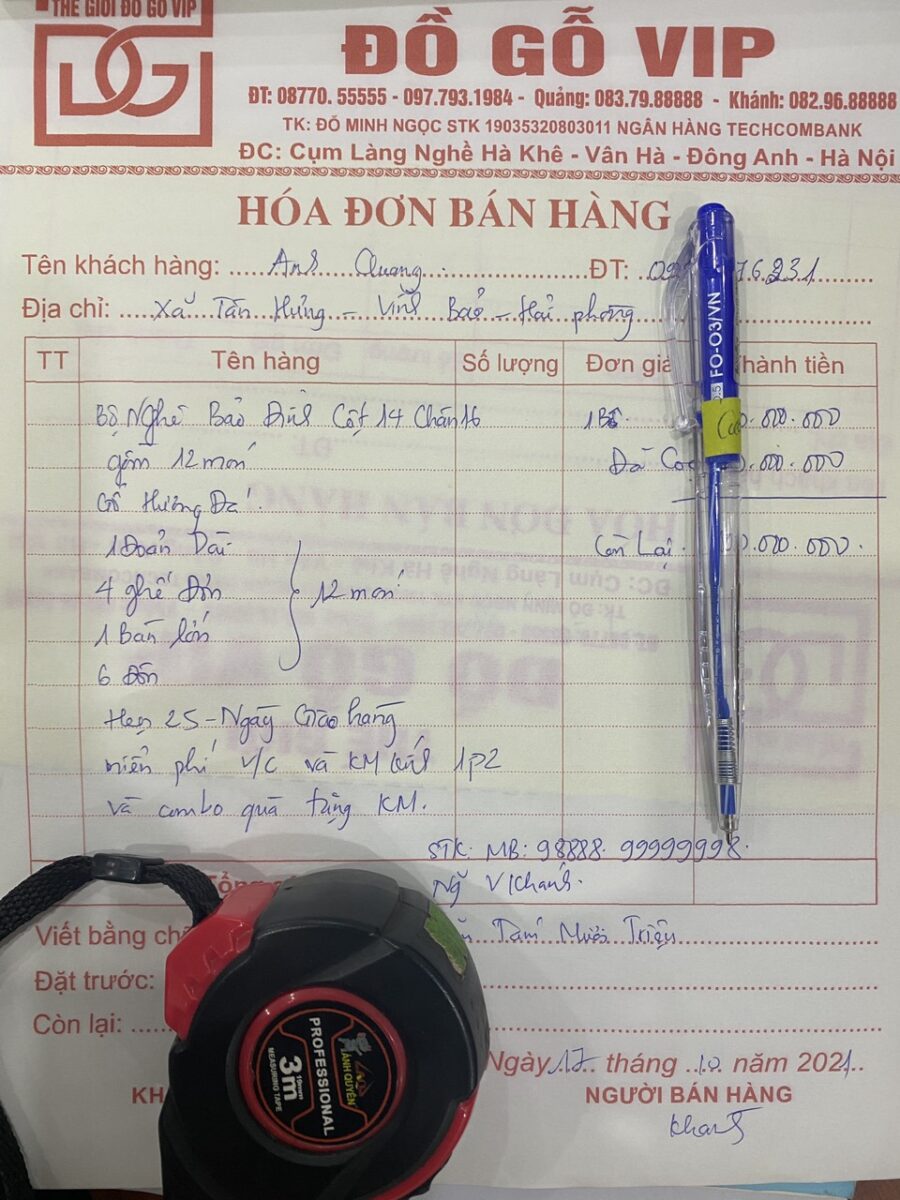 THẾ GIỚI ĐỒ GỖ VIP
DG
ĐỒ GỖ VIP
ĐT: 08770. 55555 - 097.793.1984 - Quảng: 083.79.88888 - Khánh: 082.96.88888
TK: ĐỖ MINH NGỌC STK 19035320803011 NGÂN HÀNG TECHCOMBANK
ĐC: Cụm Làng Nghề Hà Khê - Vân Hà - Đông Anh - Hà Nội
HÓA ĐƠN BÁN HÀNG
Tên khách hàng: Anh Quang ĐT: 76.231
Địa chỉ: Xã Tân Hưng - Vĩnh Bảo - Hải phòng
TT Tên hàng Số lượng Đơn giá Thành tiền
Bộ Nghê Bảo Đỉnh Cột 14 Chân 16 1 Bộ 0.000.000
gồm 12 món Đã Cọc 0.000.000
Gỗ Hương Đá.
1 Đoản Dài Còn Lại 00.000.000.
4 ghế Đơn 12 món
1 Bàn lớn
6 Đôn
Hẹn 25 - Ngày Giao hàng
miễn phí V/C và KM 1p2
và combo quà tặng KM.
STK: MB: 98888 99999998.
Ng V Khánh.
Viết bằng Tám Mươi Triệu
Đặt trước:
Còn lại:
Ngày 17 tháng 10 năm 2021
NGƯỜI BÁN HÀNG
Khanh
FO-O3/VN
ÁNH QUYÊN
PROFESSIONAL
3m
19mm
MEASURING TAPE